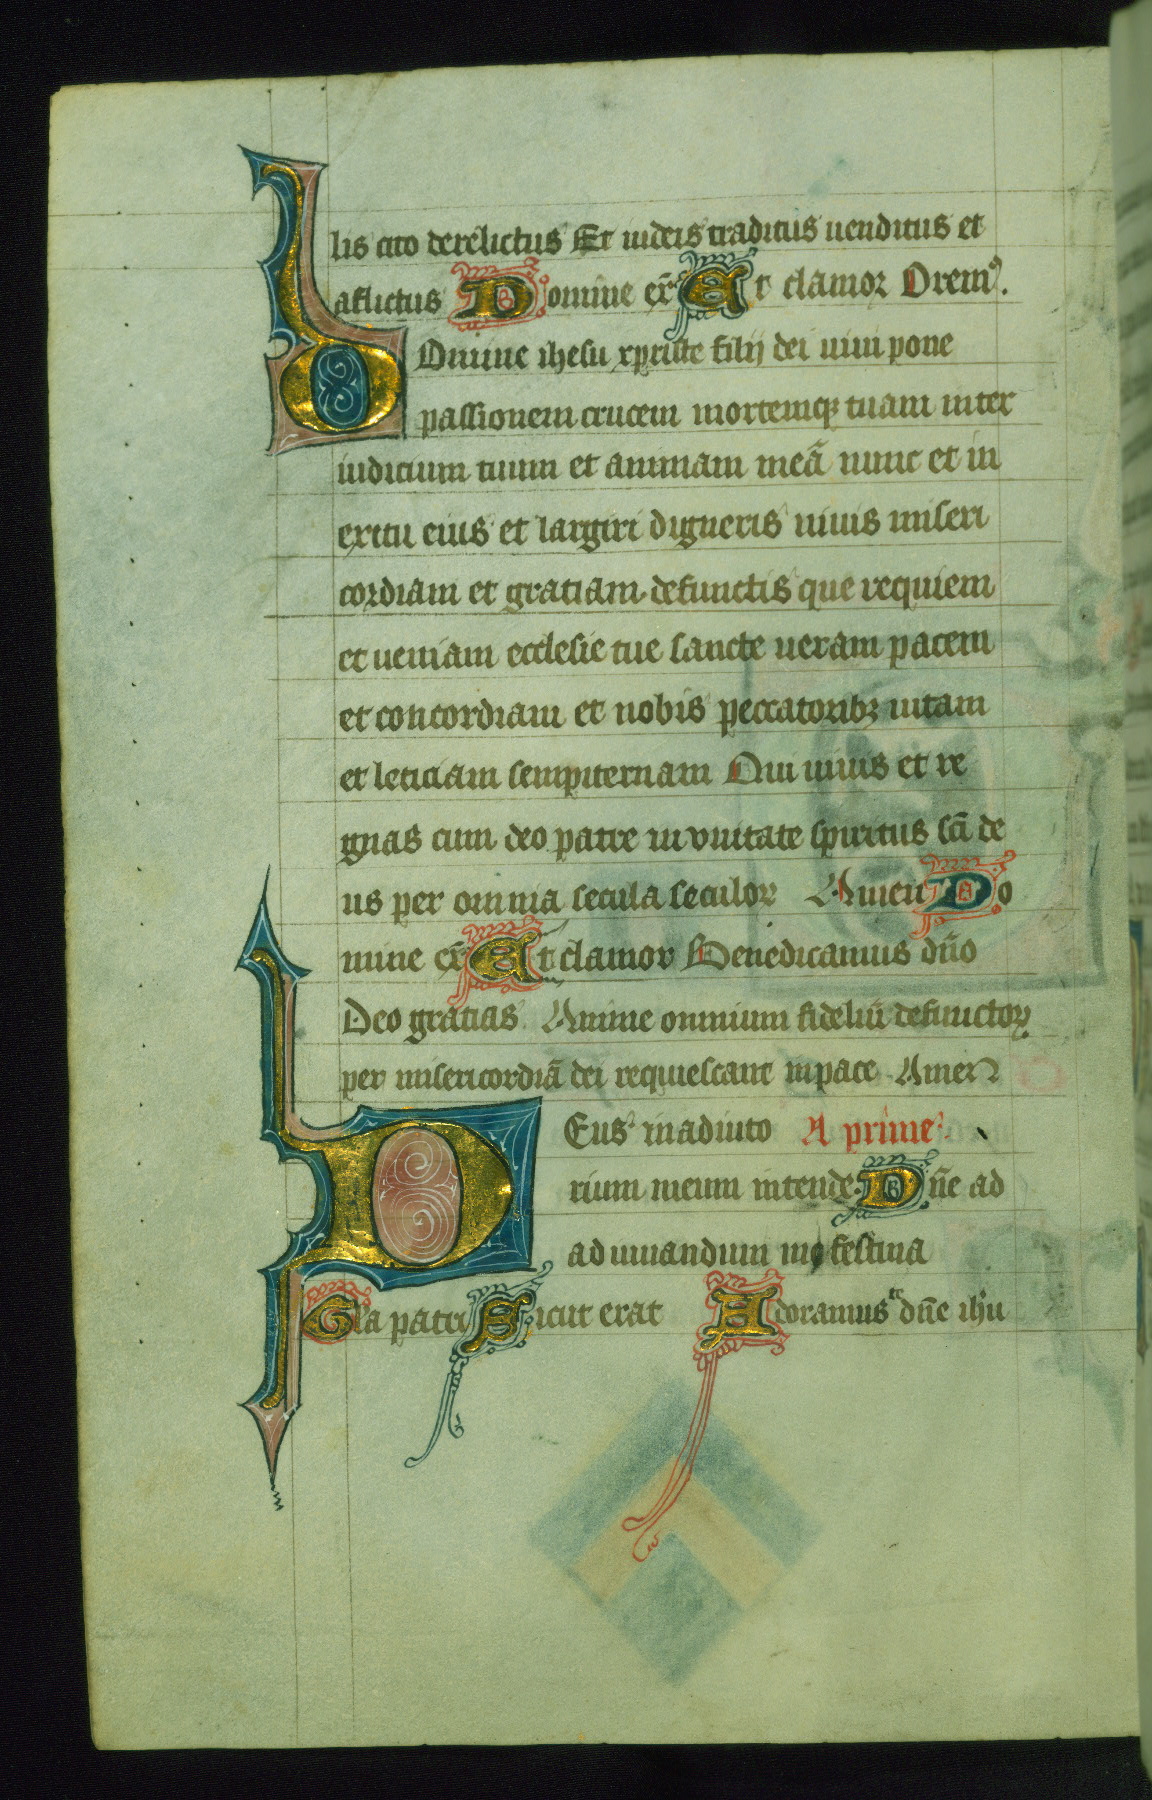 lis cito derelictus Et iudeis traditus uenditus et
aflictus Domine ex̄ Et clamor Oremꝰ.
Omine ihesu xpriste filij dei uiui pone
passionem crucem mortemqꝫ tuam inter
iudicium tuum et animam meā nunc et in
exitu eius et largiri digneris uiuis miseri
cordiam et gratiam defunctis que requiem
et ueniam ecclesie tue sancte ueram pacem
et concordiam et nobis peccatoribꝫ uitam
et leticiam sempiternam Qui uiuis et re
gnas cum deo patre in vnitate spiritus sc̄i de
us per omnia secula seculoꝝ Amen Do
mine ex̄ Et clamor Benedicamus dn̄o
Deo gratias Anime omnium fideliū defunctoꝝ
per misericordiā dei requiescant in pace Amen
Eus in adiuto A prime
rium meum intende Dn̄e ad
adiuuandum me festina
Gl̄a patri Sicut erat Adoramus te dn̄e ih̄u